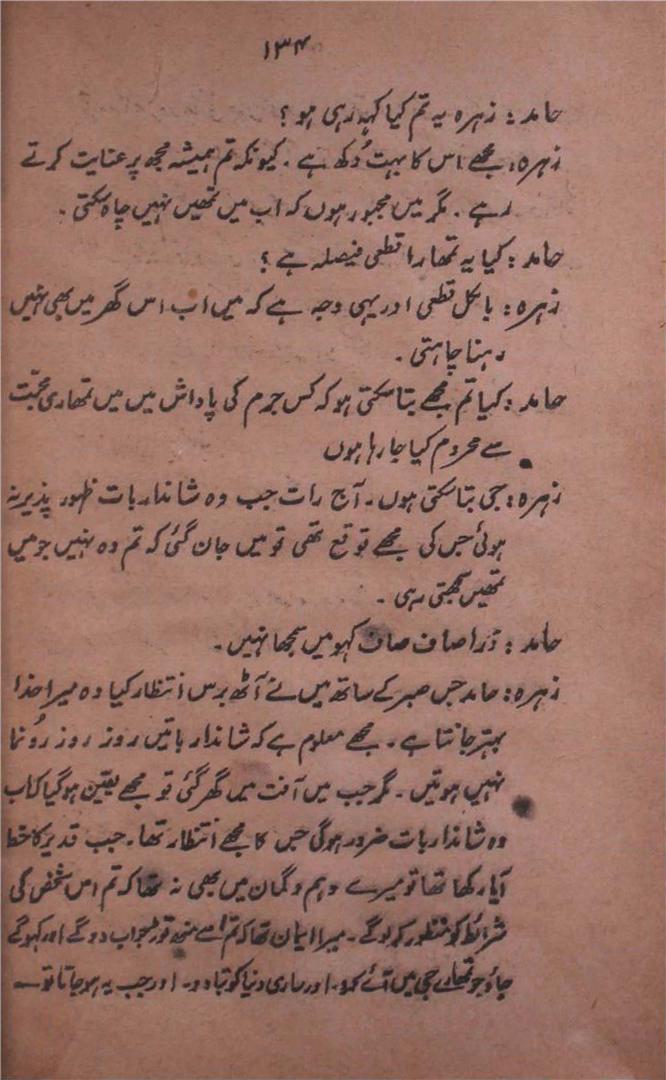 ۱۳۴
حامد: زہرہ یہ تم کیا کہہ رہی ہو؟
زہرہ: مجھے اس کا بہت دُکھ ہے۔ کیونکہ تم ہمیشہ مجھ پر عنایت کرتے
رہے۔ مگر میں مجبور ہوں کہ اب میں تمھیں نہیں چاہ سکتی۔
حامد: کیا یہ تمھارا قطعی فیصلہ ہے؟
زہرہ: بالکل قطعی اور یہی وجہ ہے کہ میں اب اس گھر میں بھی نہیں
رہنا چاہتی۔
حامد: کیا تم مجھے بتا سکتی ہو کہ کس جرم کی پاداش میں میں تمھاری محبّت
سے محروم کیا جا رہا ہوں
زہرہ: جی بتا سکتی ہوں۔ آج رات جب وہ شاندار بات ظہور پذیر نہ
ہوئی جس کی مجھے توقع تھی تو میں جان گئی کہ تم وہ نہیں جو میں
تمھیں سمجھتی رہی۔
حامد: ذرا صاف صاف کہو میں سمجھا نہیں۔
زہرہ: حامد جس صبر کے ساتھ میں نے آٹھ برس انتظار کیا وہ میرا خدا
بہتر جانتا ہے۔ مجھے معلوم ہے کہ شاندار باتیں روز روز رُونما
نہیں ہوتیں۔ مگر جب میں آفت میں گھر گئی تو مجھے یقین ہو گیا کہ اب
وہ شاندار بات ضرور ہوگی جس کا مجھے انتظار تھا۔ جب قدیر کا خط
آیا رکھا تھا تو میرے وہم و گمان میں بھی نہ تھا کہ تم اس شخص کی
شرائط کو منظور کر لو گے۔ میرا ایمان تھا کہ تم اسے منھ توڑ جواب دو گے اور کہو گے
جاؤ جو تمھارے جی میں آئے کرو۔ اور ساری دنیا کو بتا دو۔ اور جب یہ ہو جاتا تو—